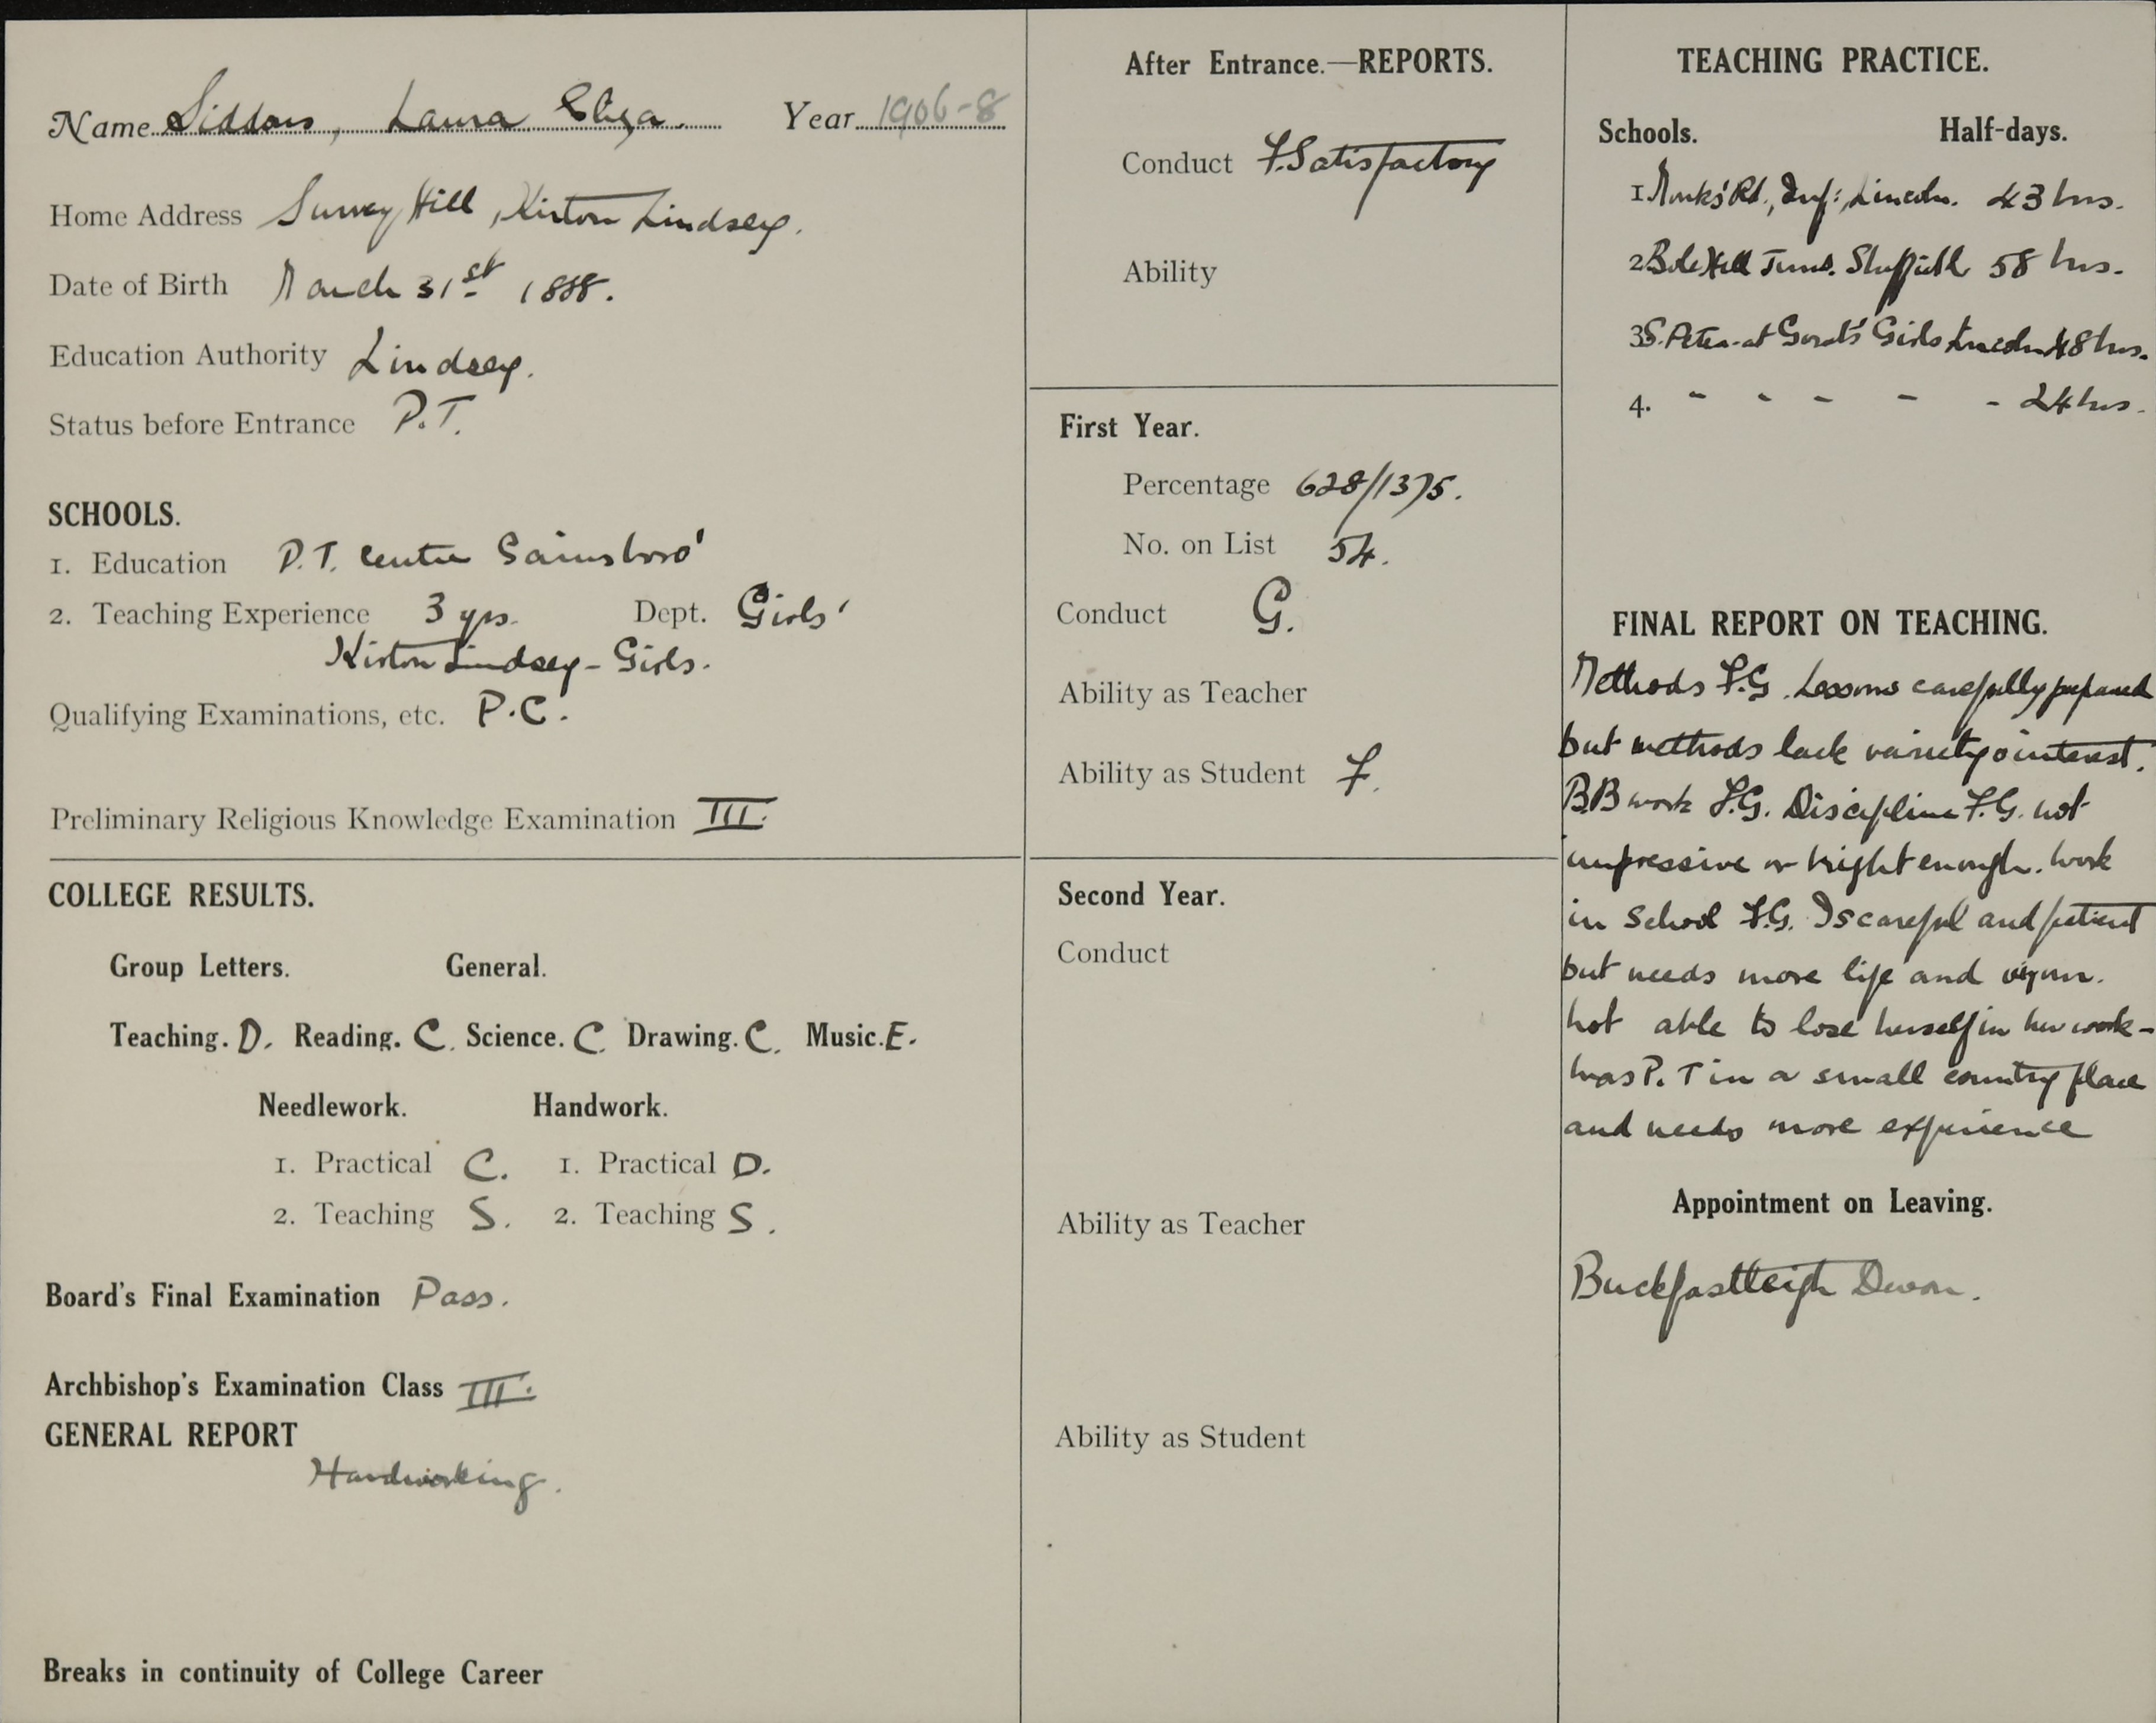 Name Siddons, Laura Eliza. Year 1906-8
Home Address Surrey Hill, Kirton Lindsey.
Date of Birth March 31st 1888.
Education Authority Lindsey.
Status before Entrance P.T.
SCHOOLS.
1. Education P.T. Centre Gainsboro'
2. Teaching Experience 3 yrs. Dept. Girls'
Kirton Lindsey - Girls.
Qualifying Examinations, etc. P.C.
Preliminary Religious Knowledge Examination III.
COLLEGE RESULTS.
Group Letters. General.
Teaching. D. Reading. C. Science. C. Drawing. C. Music. E.
Needlework. Handwork.
1. Practical C. 1. Practical D.
2. Teaching S. 2. Teaching S.
Board's Final Examination Pass.
Archbishop's Examination Class III.
GENERAL REPORT
Hardworking.
Breaks in continuity of College Career
After Entrance.—REPORTS.
Conduct F. Satisfactory
Ability
First Year.
Percentage 628/1375.
No. on List 54.
Conduct G.
Ability as Teacher
Ability as Student F.
Second Year.
Conduct
Ability as Teacher
Ability as Student
TEACHING PRACTICE.
Schools. Half-days.
1 Monks' Rd., Inf:, Lincoln. 43 hrs.
2 Bole Hill Sheffield 58 hrs.
3 S. Peter-at Gowt's Girls Lincoln 48 hrs.
4. " " " " " 24 hrs.
FINAL REPORT ON TEACHING.
Methods F.G. Lessons carefully prepared
but methods lack variety & interest.
BB work F.G. Discipline F.G. not
impressive or bright enough. Work
in School F.G. Is careful and patient
but needs more life and vigour.
Not able to lose herself in her work -
was P.T in a small country place
and needs more experience
Appointment on Leaving.
Buckfastleigh Devon.